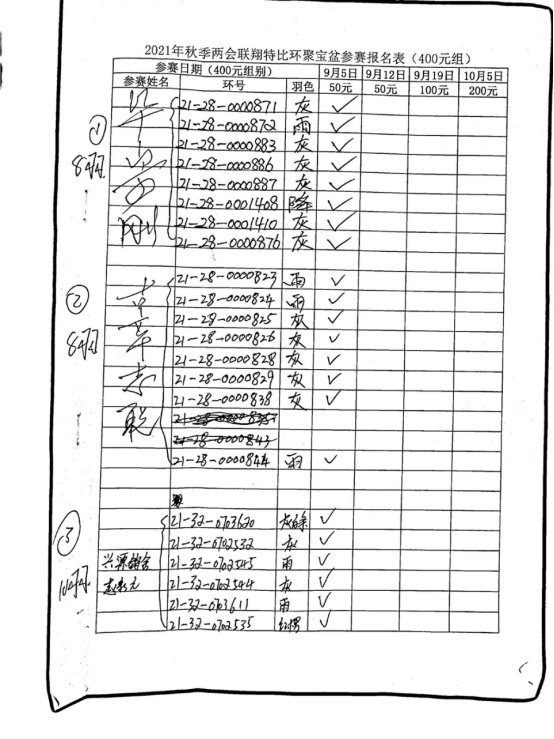 2021年秋季两会联翔特比环聚宝盆参赛报名表（400元组）
参赛日期（400元组别） 9月5日 9月12日 9月19日 10月5日
参赛姓名 环号 羽色 50元 50元 100元 200元
21-28-0000871 灰 ✓
21-28-0000872 雨 ✓
① 21-28-0000883 灰 ✓
8羽 21-28-0000886 灰 ✓
21-28-0000887 灰 ✓
21-28-0001408 ✓
刚 21-28-0001410 灰 ✓
21-28-0000876 灰 ✓
21-28-0000823 雨 ✓
② 21-28-0000824 雨 ✓
21-28-0000825 灰 ✓
8羽 21-28-0000826 灰 ✓
21-28-0000828 灰 ✓
志 21-28-0000829 灰 ✓
21-28-0000838 灰 ✓
21-28-0000843
21-28-0000844 雨 ✓
21-32-0703620 ✓
③ 21-32-0702532 灰 ✓
兴源鸽舍 21-32-0702545 雨 ✓
21-32-0702544 灰 ✓
21-32-0703611 雨 ✓
21-32-0702535 ✓